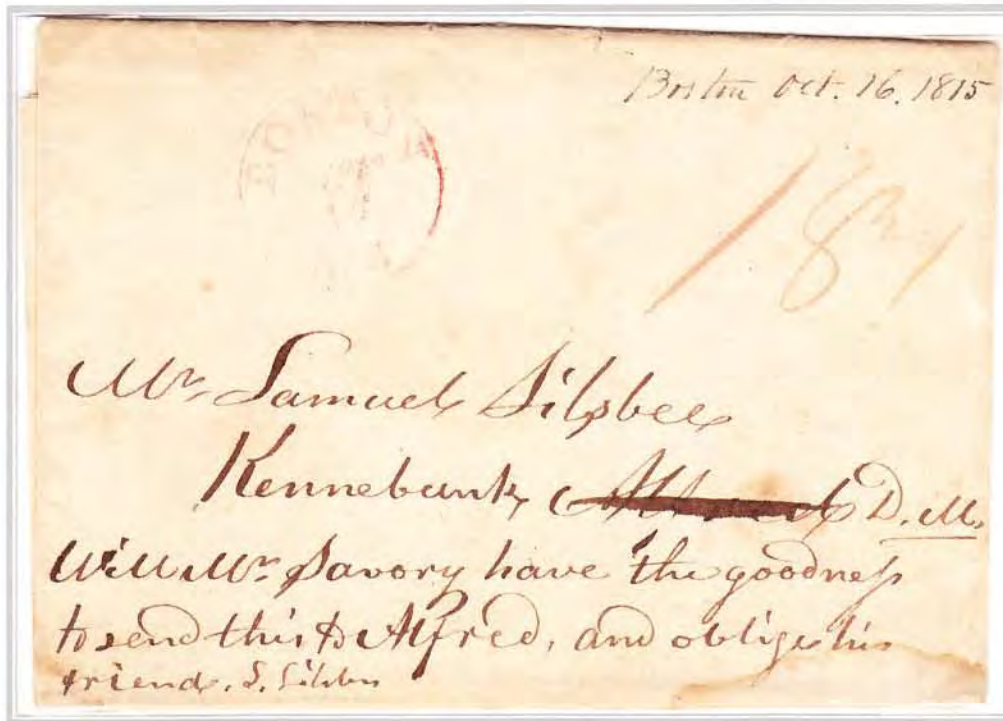 Boston Oct. 16. 1815
BOSTON
18¾
Mr Samuel Silsbee
Kennebunk D. M.
Will Mr Savory have the goodness
to send this to Alfred, and oblige his
friend. S. Silsbee